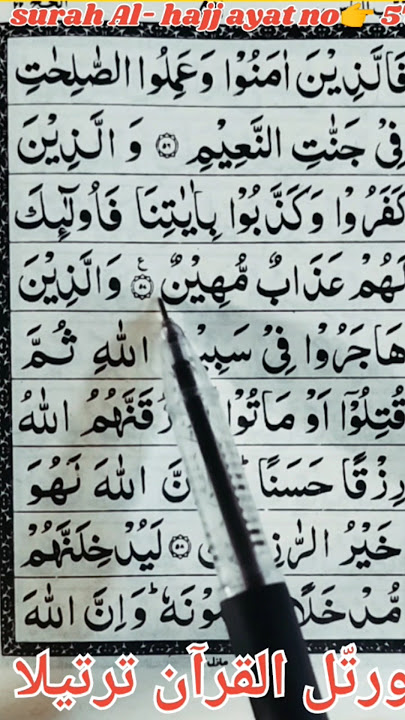 surah Al- hajj ayat no👉 5
فَالَّذِيْنَ اٰمَنُوْا وَعَمِلُوا الصّٰلِحٰتِ
فِيْ جَنّٰتِ النَّعِيْمِ ۝۵۶ وَ الَّذِيْنَ
كَفَرُوْا وَكَذَّبُوْا بِاٰيٰتِنَا فَاُولٰٓئِكَ
لَهُمْ عَذَابٌ مُّهِيْنٌ ۝ ع وَالَّذِيْنَ
هَاجَرُوْا فِيْ اللّٰهِ ثُمَّ
قُتِلُوْٓا اَوْ مَاتُوْا اللّٰهُ
رِزْقًا حَسَنًا اللّٰهَ لَهُوَ
خَيْرُ ۝ لَيُدْخِلَنَّهُمْ
وَاِنَّ اللّٰهَ
ورتّل القرآن ترتيلا